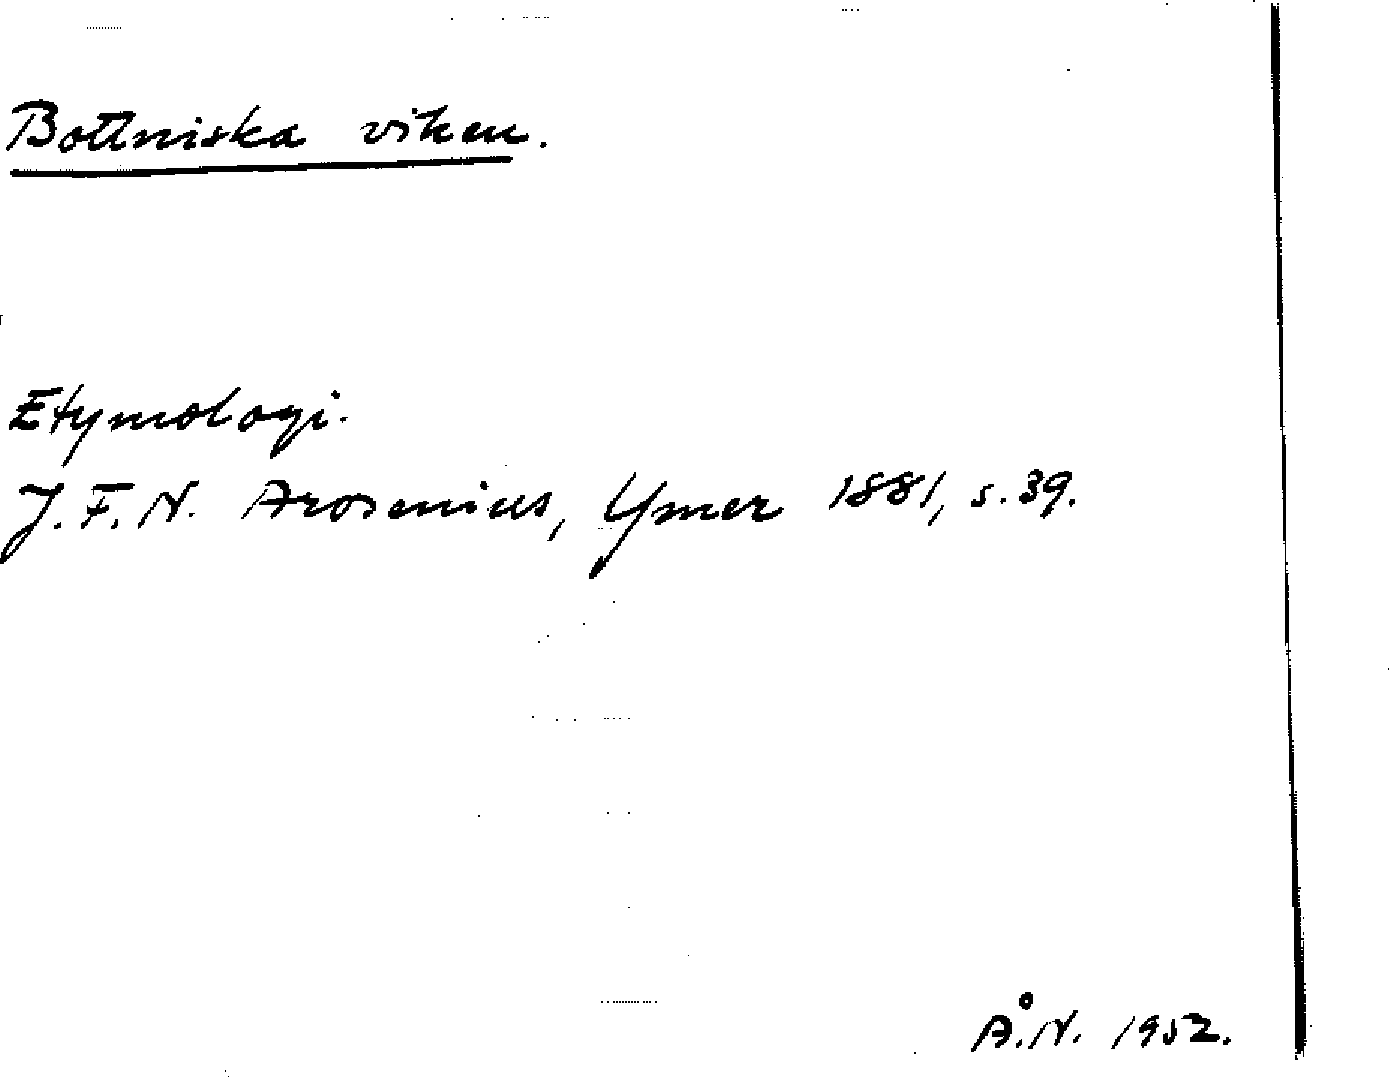 Bottniska viken.
Etymologi.
J. F. N. Arosenius, Ymer 1881, s. 39.
Å. N. 1952.